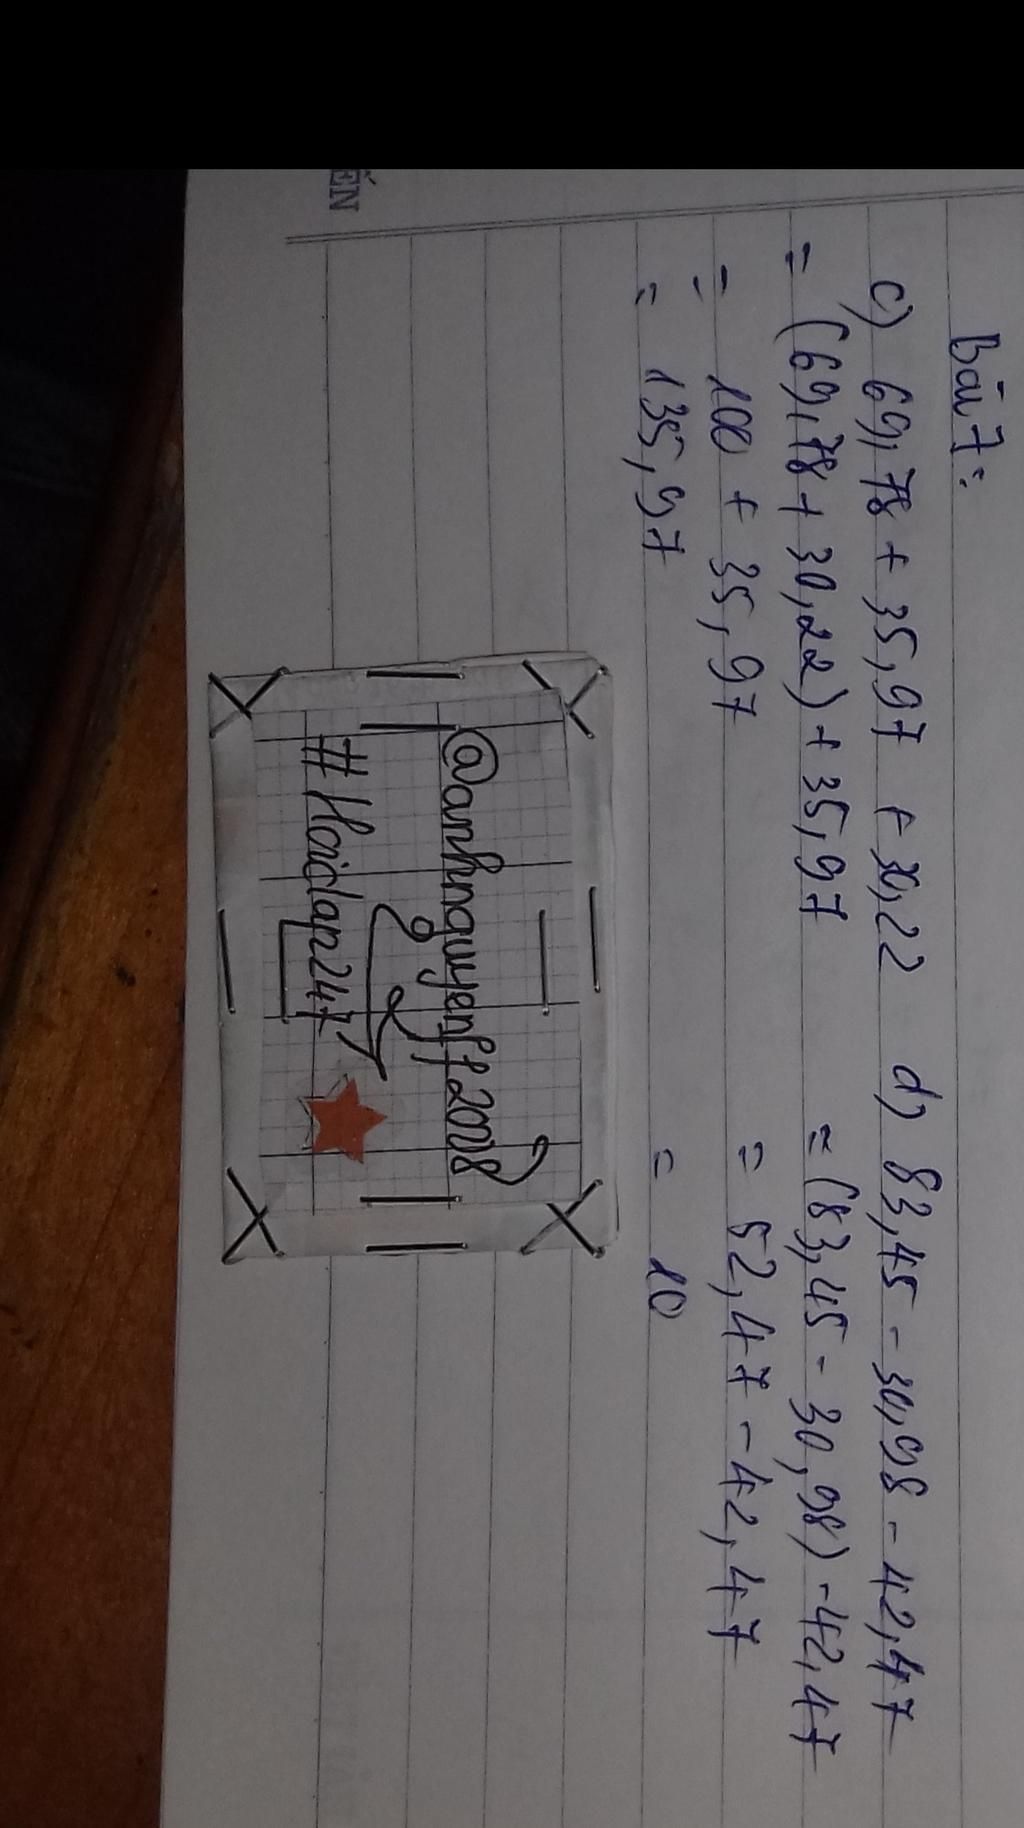 ẾN
Bài 7:
c) 69,78 + 35,97 + 30,22
= (69,78 + 30,22) + 35,97
= 100 + 35,97
= 135,97
d) 83,45 - 30,98 - 42,47
= (83,45 - 30,98) - 42,47
= 52,47 - 42,47
= 10
@anhnguyenf2008
#Hoidap247